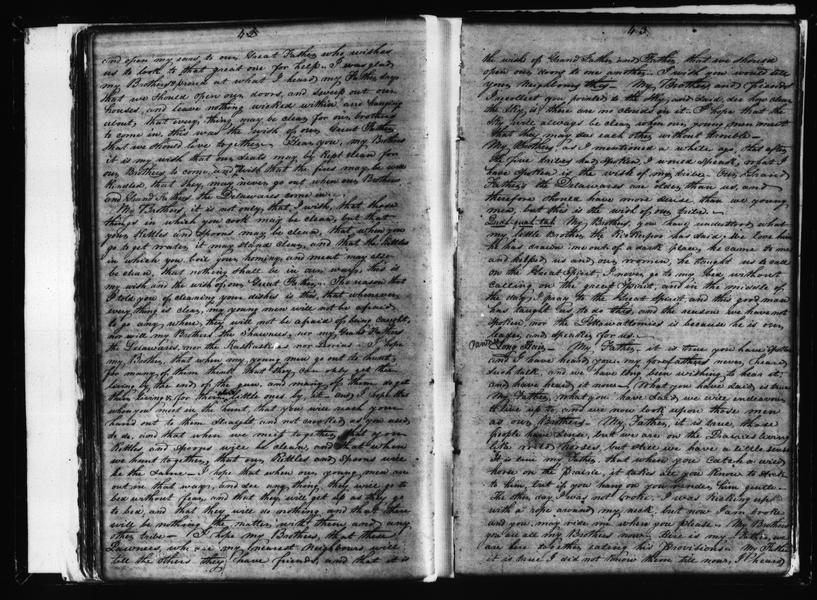 42
and open my ears, to our Great Father who wishes
us to look to that great one for help. I was glad
my Brothers & friend at what I heard my Father say
that we should open our doors, and sweep out our
houses, and leave nothing wicked within and
about, that every thing may be clear for our brothers
to come in, this was the wish of our Great Father
that we should love together. Hear you, my Brothers
it is my wish that our seats may be kept clean for
our Brothers to come, and wish that the fires may be
kindled, that they may never go out when our Brothers
and Grand Fathers the Delawares come in.
My Brothers, it is not only that I wish, that those
things in which you cook may be clean, but that
your Kettles and Spoons may be clean, that when you
go to get water, it may stand clear, and that the Kettles
in which you boil your hominy and meat may also
be clean, that nothing shall be in our way; this is
my wish and the wish of our Great Father. The reason that
I told you of cleaning your dishes is this, that whenever
every thing is clear, my young men will not be afraid
to go any where, they will not be afraid of being caught,
nor will my Brothers the Shawnees, nor my Grand Fathers
the Delawares, nor the Kaskaskias nor Peorias. I hope
my Brother, that when my young men go out to hunt,
for many of them think that they can only get their
living by the end of the gun, and many of them do get
their living for their little ones by it, and I hope that
when you meet in the hunt, that you will reach your
hand out to them straight and not crooked as you used
to do, and that when we meet together that your
Kettles and Spoons will be clean, and that when
we hunt together, that our Kettles and Spoons will
be the same. I hope that when our young men are
out in that way, and see any thing they will go to
bed without fear, and that they will get up as they go
to bed, and that they will do nothing, and that there
will be nothing the matter with them and any
other tribe. I hope my Brothers, that these
Pawnees, who are my nearest neighbours will
tell the others they have friends, and that it is
43
the wish of Grand Father and Brother that we should
open our doors to one another. I wish you would tell
your neighboring they. My Brothers, and friends
I noticed you pointed to the Sky, and said, see how clear
the Sky is, there are no clouds in it. I hope that the
Sky will always be clear when our young men meet
that they may see each other without trouble.
My Brothers, as I mentioned a while ago, that after
the five tribes had spoken, I would speak, what I
have spoken is the wish of my tribe. Our Grand
Fathers the Delawares are older than us, and
therefore should have more sense than we young
men, but this is the wish of our tribe.
My Brothers, you have understood what
my little Brother the Kickapoo has said; we love him
he has drawn me out of a dark place, he came to me
and helped us and our women, he taught us to call
on the Great Spirit. I never go to my bed without
calling on the great Spirit, and in the middle of
the day, I pray to the Great Spirit, and this good man
has taught us to do this, and the reason we have not
spoken, nor the Pottawattomies is because he is our
leader, and speaks for us.
Pawnee
Long Hair. My Father, it is true you have spoken
and I have heard you, my forefathers never heard
such talk, and we have long been wishing to hear it,
and have heard it now. What you have said is true
My Father, what you have said we will endeavour
to live up to, and we now look upon those men
as our Brothers. My Father, it is true, these
people have sense, but we are on the Prairies living
like wild horses, but still we have a little sense
It is true my Father, that when you catch a wild
horse on the Prairie, it takes all you know to stick
to him, but if you hang on you render him gentle.
The other day I was not broke. I was kicking up
with a rope around my neck, but now I am broke
and you may ride me where you please. My Brothers
you are all my Brothers now. Here is my Father, we
are here together eating his provisions. My Father
it is true I did not know them till now, I heard